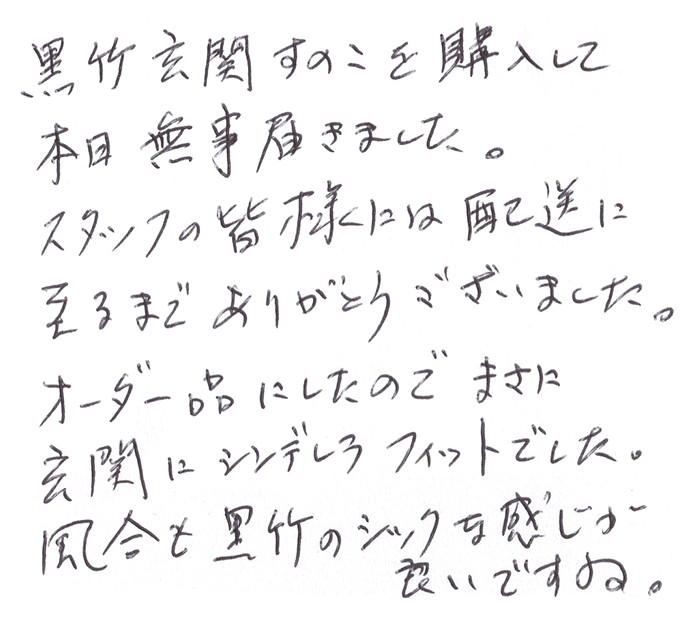 黒竹玄関すのこを購入して
本日無事届きました。
スタッフの皆様には配送に
至るまでありがとうございました。
オーダー品にしたのでまさに
玄関にシンデレラフィットでした。
風合も黒竹のシックな感じが
良いですね。